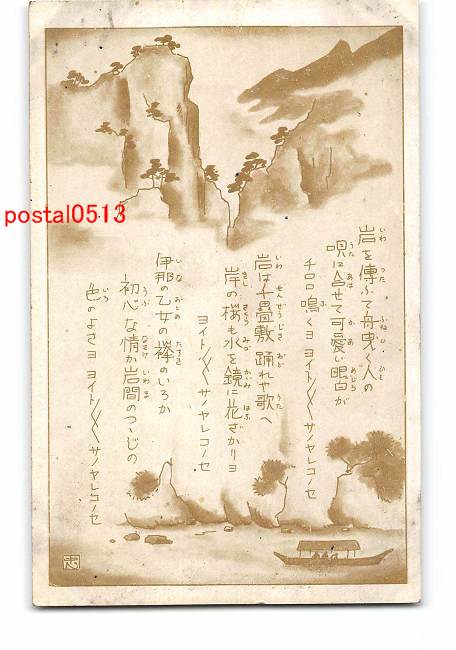 postal0513
岩を傳ふて舟曳く人の
唄に合せて可愛い眼白が
チロロ鳴くヨ ヨイト〳〵〳〵サノヤレコノセ
岩は千疊敷 踊れや歌へ
岸の桜も水を鏡に花ざかりヨ
ヨイト〳〵〳〵サノヤレコノセ
伊那の乙女の襷のいろか
初心な情か岩間のつゝじの
色のよさヨ ヨイト〳〵〳〵サノヤレコノセ